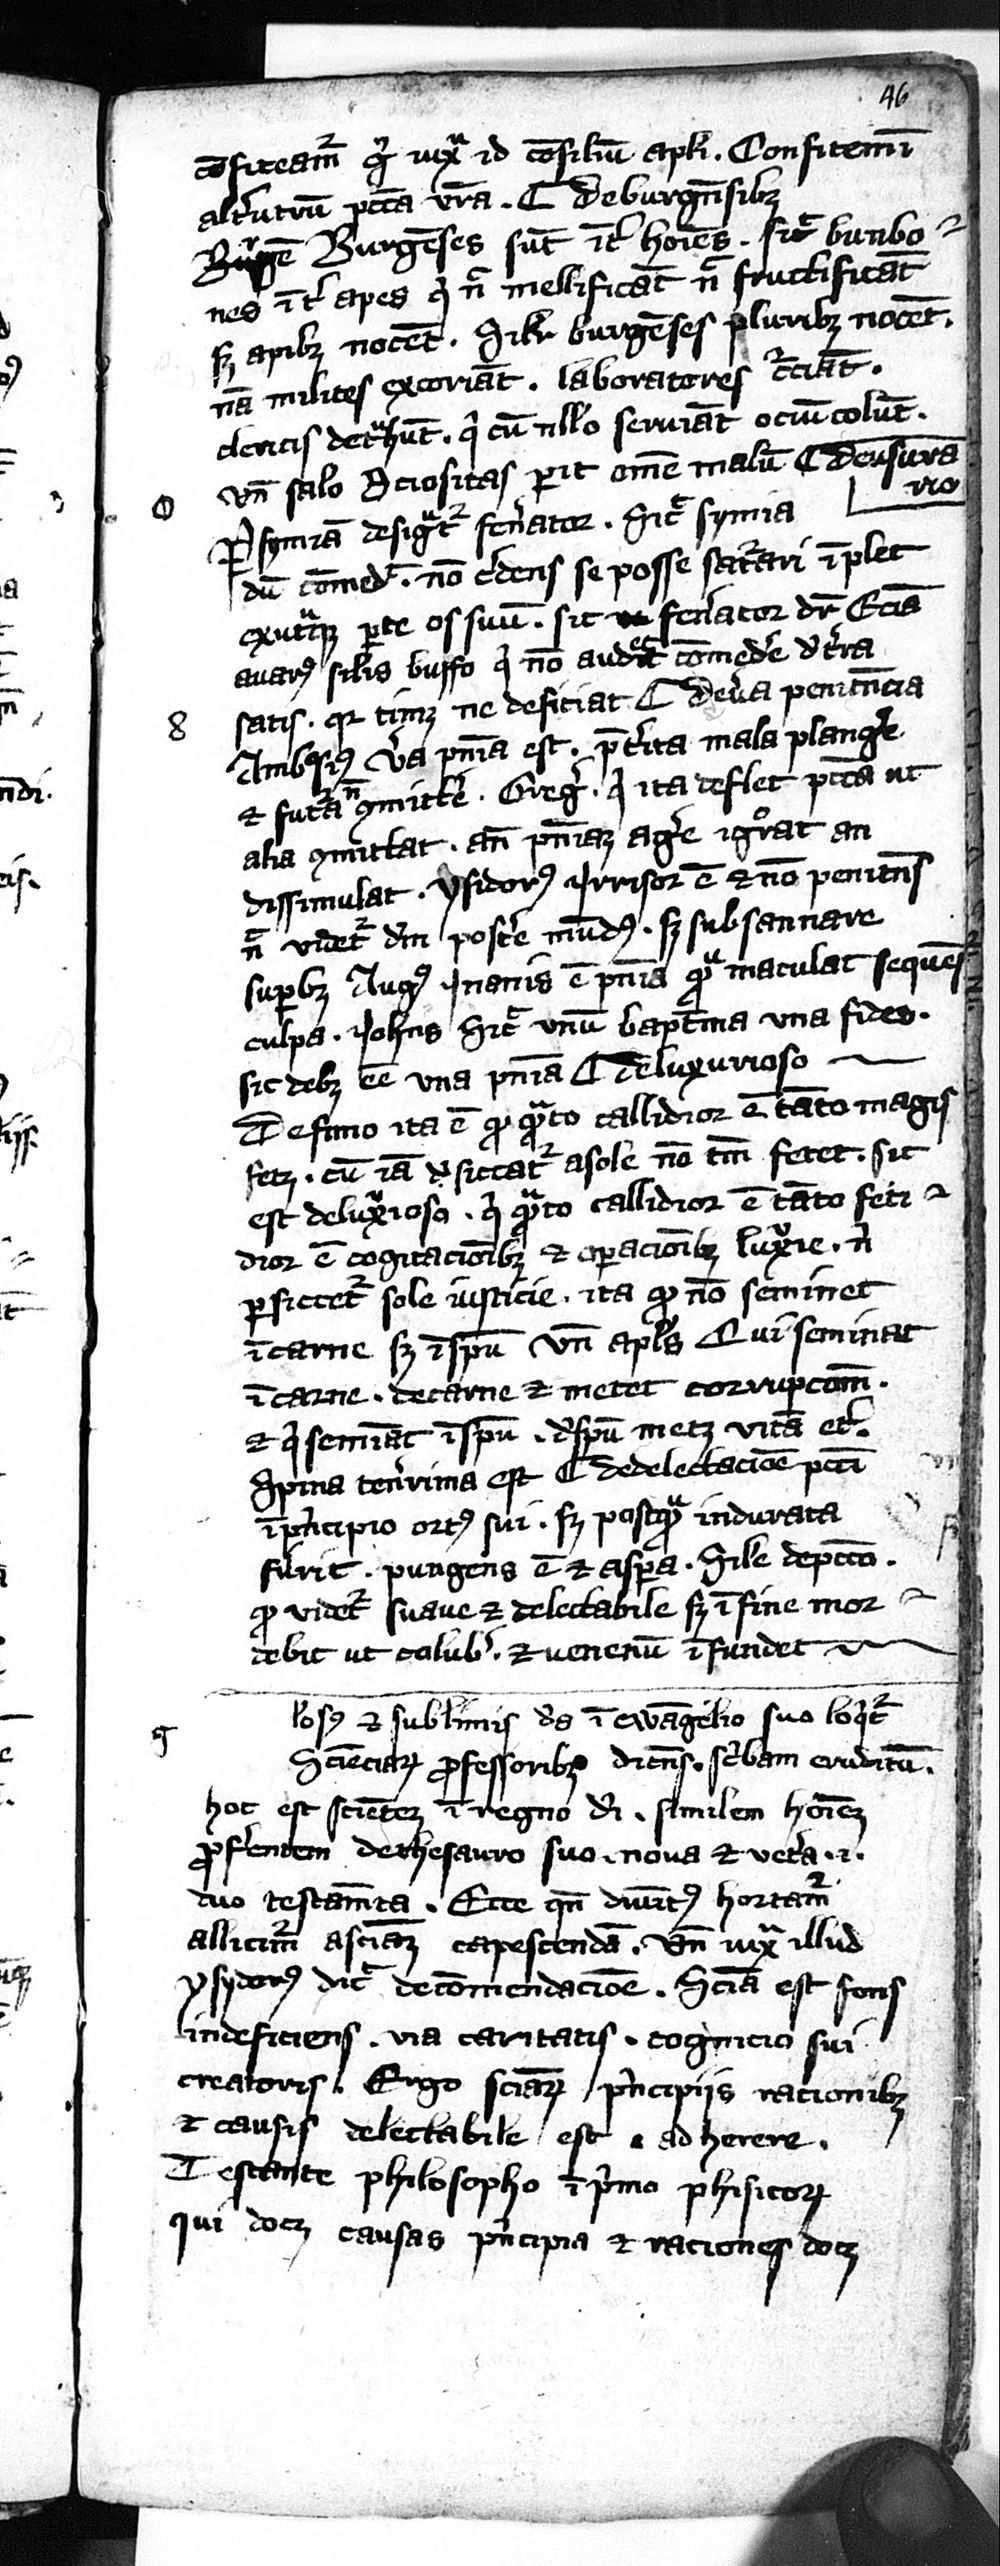 46
ꝯfiteamͬ gͥ iuxͣ id ꝯsiliū apłi . Confitemī
altͥutrū pcca vr̄a . C De burgn̄sibꝫ
Burgē Burgēses sūt int̄ hoīes . sicͭ bunbo
nes īt̄ apes qͥ nͦ mellificāt nͦ fructificāt
sꝫ apibꝫ nocēt . Silr̄ burgēses pluribꝫ nocēt .
nā milites excoriāt . laboratores tͥciāt .
clericis detͣhūt . qͥ cū nłło seruiāt ociū colūt .
vn̄ salo Ociositas parit om̄e malū C de vsura
rio
O
Per symiā desigͣtͬ fen̄ator . Sicͭ symia
dū cōmedͭ . nō cͥdens se posse satͬari īplet
ex utͣqꝫ pͣte os suū . sic fen̄ator dr̄ Eciā
auarꝰ silis buffo qͥ nō audet cōmedͥe de tͥra
8
satis . qͬ timꝫ ne deficiat C de v̄a penitn̄cia
Ambͦsiꝰ v̄a pn̄ia est . p̄tͥita mala plangͥe
⁊ futͬa nͦ ꝯmittͥe . Gregͥ . qͥ ita deflet pcca ut
alia ꝯmittat . an̄ pn̄iaꝫ agͥe igͦrat an
dissimulat . ysidorꝰ Irrisor ē ⁊ nō penitn̄s
nͦ videtͬ dm̄ poscͥe mūdꝰ . sꝫ subsannare
suꝑbꝫ Augꝰ Inanis ē pn̄ia qͣ maculat sequēs
culpa . Iohn̄s Sicͭ vnū bapt̄ma una fides .
sic debꝫ eē una pn̄ia C de luxurioso
De fimo ita ē qͦ qͣto callidior ē tāto magis
fetꝫ . cū iā desiccatͬ a sole nō tm̄ fetet . sic
est de luxͥioso . qͥ qͣto callidior ē tāto feti
dior ē cogitacionibꝫ ⁊ oꝑacionibꝫ luxͥie . nͥ
ꝑsiccetͬ sole iusticie . ita qͦ nō seminet
ī carne sꝫ ī spū vn̄ apłs Qui seminat
ī carne . de carne ⁊ metet corrupcōm .
⁊ qͥ semīat ī spū . de spū metꝫ vitā etͥ .
Spina ten̄rima est C de delectacōe pccī
ī pͥncipio ortꝰ sui . sꝫ postqͣ indurata
fuͥit . pungens ē ⁊ asꝑa . Sile de pccō .
qͦ videtͬ suaue ⁊ delectabile sꝫ ī fine mor
debit ut colubͥ . ⁊ uenenū īfundet
g
losꝰ ⁊ sublimis ds ī ewāgelio suo loqͥtͬ
Scienciaꝝ ꝓfessoribꝫ dicn̄s . scͥbam eruditū .
hoc est scientēꝫ ī regno dī . similem hoīeꝫ
ꝓfͥentem de thesauro suo . noua ⁊ vetͥa . i .
duo testam̄ta . Ecce qn̄ diuītꝰ hortamͬ
allicimͬ a sciaꝫ capescendā . vn̄ iuxͣ illud
ysydorꝰ dicͭ de cōmendacōe . Scīa est fons
indeficiens . via caritatis . cognicio sui
creatoris . Ergo sciaꝝ pͥncipiis racionibꝫ
⁊ causis delectabile est adherere .
Testante philosopho ī pͥmo phisicoꝝ
qui docꝫ causas pͥncipia ⁊ raciones docꝫ